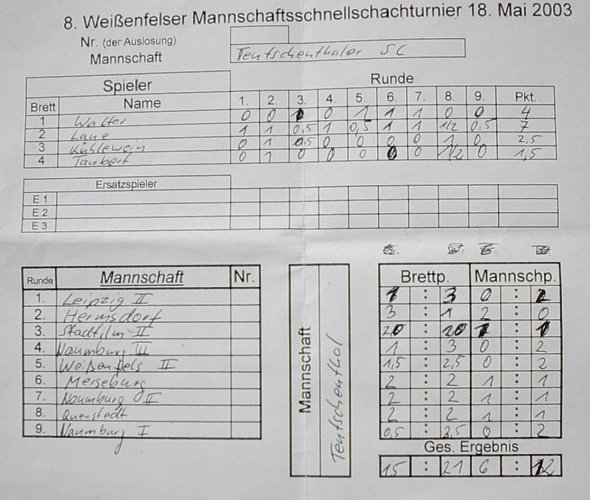 8. Weißenfelser Mannschaftsschnellschachturnier 18. Mai 2003
Nr. (der Auslosung)
Mannschaft Teutschenthaler SC
Spieler Runde
Brett Name 1. 2. 3. 4. 5. 6. 7. 8. 9. Pkt.
1 Walter 0 0 0 1 1 1 0 0 4
2 Laue 1 1 0,5 1 0,5 1 1 1/2 0,5 7
3 Kühlewein 0 1 0,5 0 0 0 0 1 0 2,5
4 Taubert 0 1 0 0 0 0 0 1/2 0 1,5
Ersatzspieler
E 1
E 2
E 3
Runde Mannschaft Nr. Mannschaft Teutschenthal Brettp. Mannschp.
1. Leipzig II 1 : 3 0 : 2
2. Hermsdorf 3 : 1 2 : 0
3. Stadtilm II 2,0 : 2,0 1 : 1
4. Naumburg III 1 : 3 0 : 2
5. Weißenfels III 1,5 : 2,5 0 : 2
6. Merseburg 2 : 2 1 : 1
7. Naumburg II 2 : 2 1 : 1
8. Querstedt 2 : 2 1 : 1
9. Naumburg I 0,5 : 3,5 0 : 2
Ges. Ergebnis
15 : 21 6 : 12